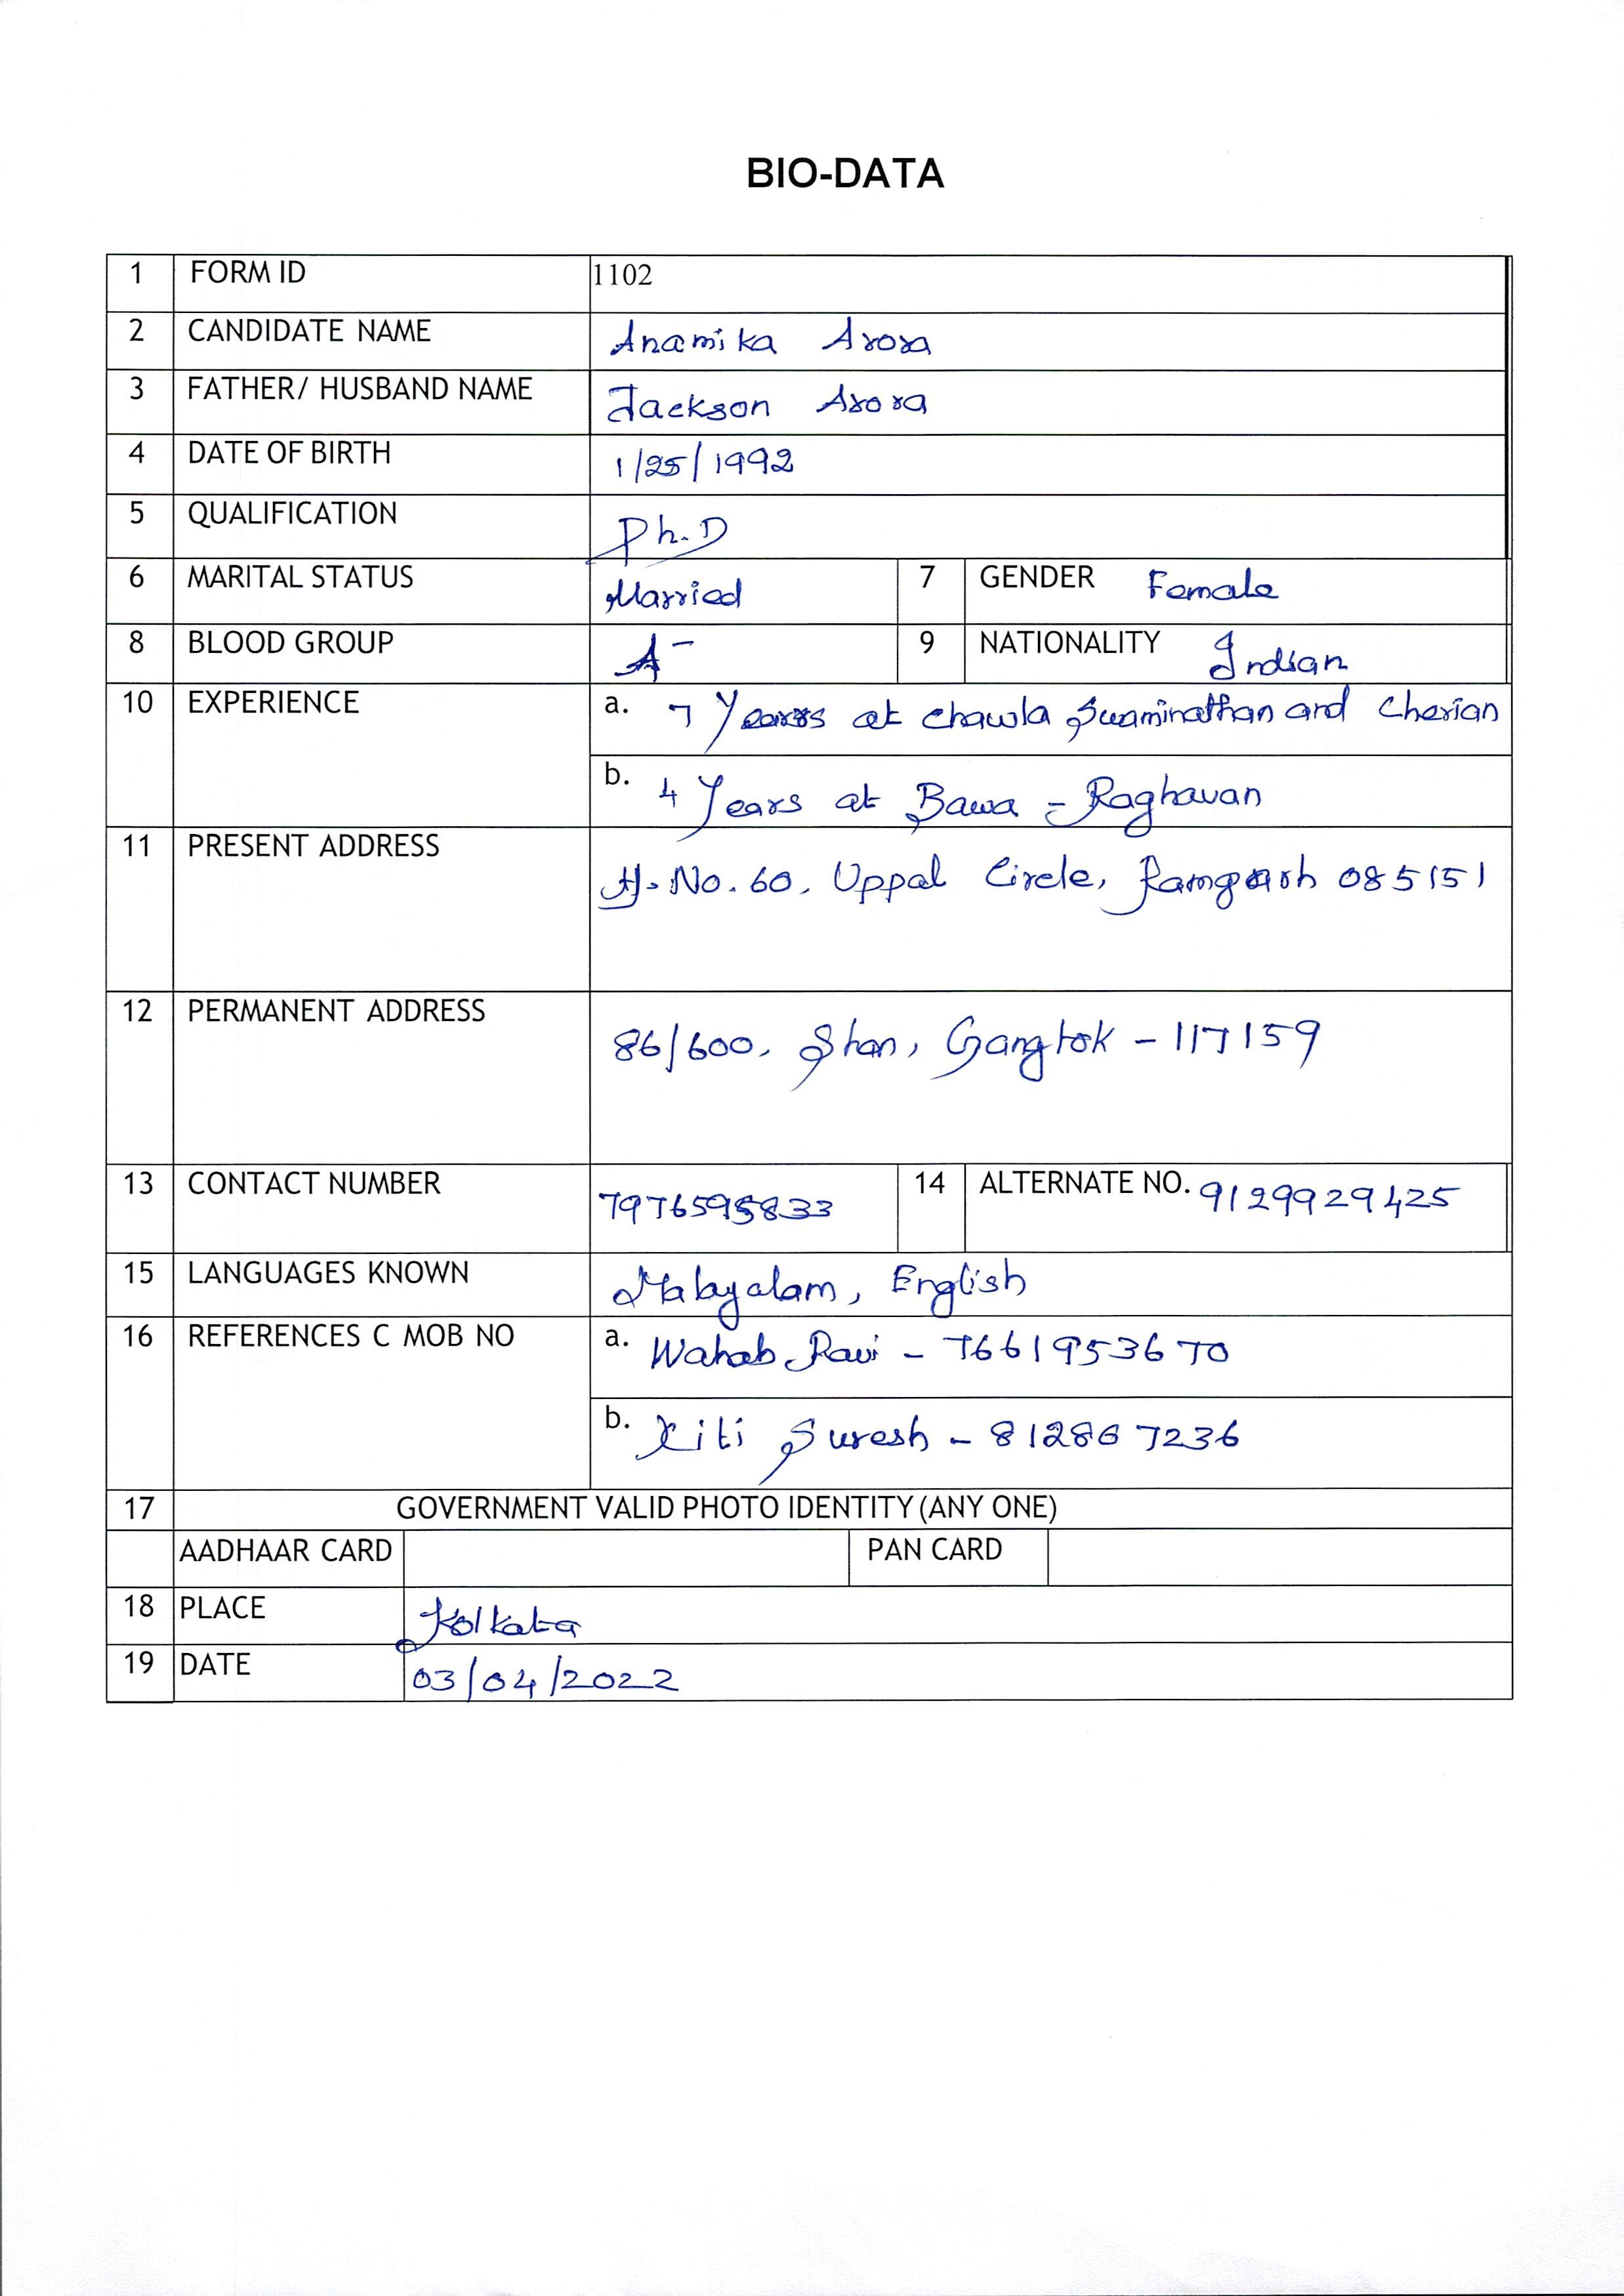 BIO-DATA
1 FORM ID 1102
2 CANDIDATE NAME Anamika Arora
3 FATHER/ HUSBAND NAME Jackson Arora
4 DATE OF BIRTH 1/25/1992
5 QUALIFICATION Ph.D
6 MARITAL STATUS Married 7 GENDER Female
8 BLOOD GROUP A- 9 NATIONALITY Indian
10 EXPERIENCE a. 7 Years at Chawla Swaminathan and Cherian
b. 4 Years at Bawa - Raghavan
11 PRESENT ADDRESS H.No.60, Uppal Circle, Ramgarh 085151
12 PERMANENT ADDRESS 86/600, Shan, Gangtok - 117159
13 CONTACT NUMBER 7976595833 14 ALTERNATE NO. 9129929425
15 LANGUAGES KNOWN Malayalam, English
16 REFERENCES C MOB NO a. Wahab Ravi - 7661953670
b. Kiti Suresh - 812867236
17 GOVERNMENT VALID PHOTO IDENTITY (ANY ONE)
AADHAAR CARD PAN CARD
18 PLACE Kolkata
19 DATE 03/04/2022